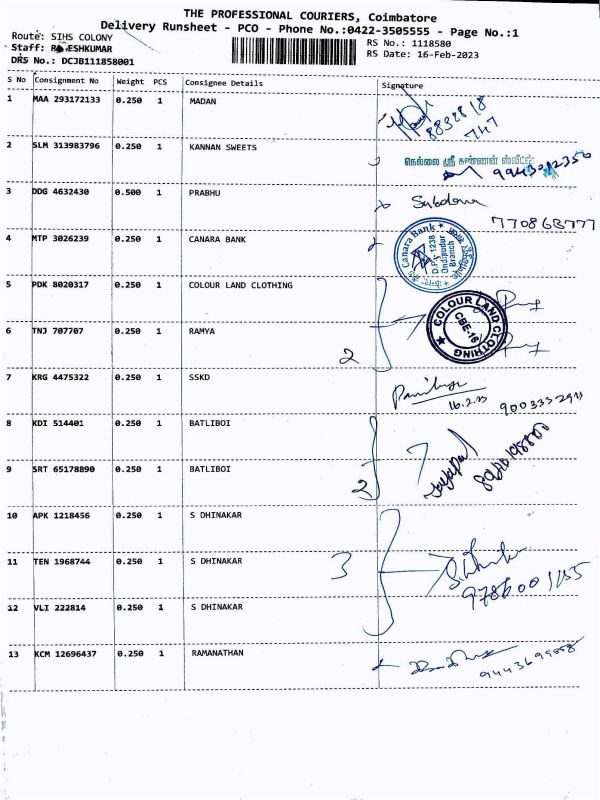 THE PROFESSIONAL COURIERS, Coimbatore
Delivery Runsheet - PCO - Phone No.:0422-3505555 - Page No.:1
Route: SIHS COLONY
RS No.: 1118580
Staff: RAJESHKUMAR
RS Date: 16-Feb-2023
DRS No.: DCJB111858001
S No Consignment No Weight PCS Consignee Details Signature
1 MAA 293172133 0.250 1 MADAN
8838818
747
2 SLM 313983796 0.250 1 KANNAN SWEETS
நெல்லை ஸ்ரீ கண்ணன் ஸ்வீட்ஸ்
3 DDG 4632430 0.500 1 PRABHU
4 MTP 3026239 0.250 1 CANARA BANK
Canara Bank
D.P.C 1238
Ondipudur
Branch
5 PDK 8020317 0.250 1 COLOUR LAND CLOTHING
COLOUR LAND CLOTHING
CBE-16
6 TNJ 707707 0.250 1 RAMYA
2
7 KRG 4475322 0.250 1 SSKD
16.2.23
8 KDI 514401 0.250 1 BATLIBOI
9 SRT 65178890 0.250 1 BATLIBOI
2
Jayapal
10 APK 1218456 0.250 1 S DHINAKAR
11 TEN 1968744 0.250 1 S DHINAKAR
3
12 VLI 222814 0.250 1 S DHINAKAR
13 KCM 12696437 0.250 1 RAMANATHAN